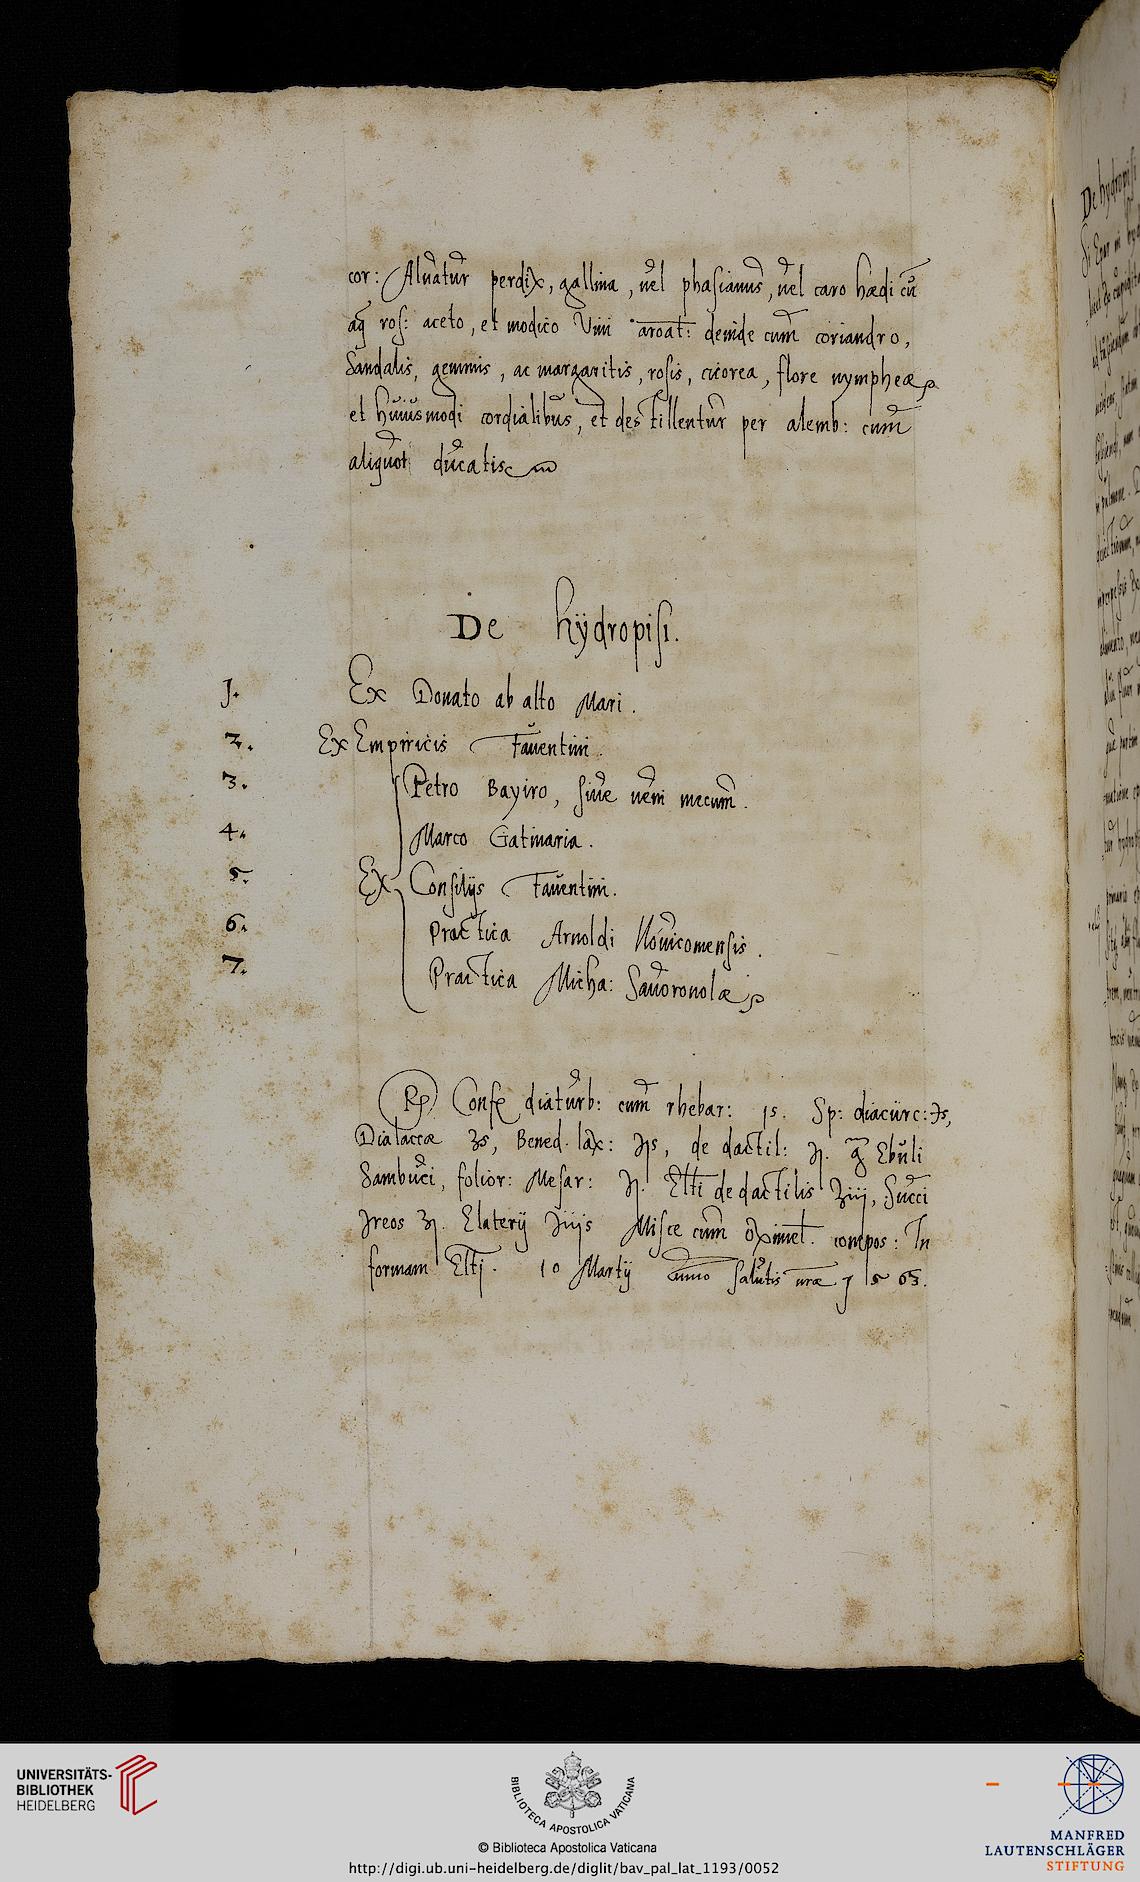 cor: Alũatũr perdix, gallina, uel phasianus, uel caro hœdi cũ
aq̃ ros: aceto, et modico Vini aroat: deinde cum coriandro,
Sandalis, gemmis, ac margaritis, rosis, cicorea, flore nympheæ
et huiusmodi cordialibus, et destillentur per alemb: cum
aliquot ducatis
De hÿdropisi.
1. Ex Donato ab alto Mari.
2. Ex Empiricis Fauentini.
3. Petro Bayiro, siue uem mecum.
4. Marco Gatinaria.
5. Ex Consilijs Fauentini.
6. Practica Arnoldi Nouicomensis.
7. Practica Micha: Sauoronolæ
Rp Confe diaturb: cum rhebar: ʒs. Sp: diacurc: ℈s,
Dialaccæ ʒs, Bened. lax: ʒjs, de dactil: ʒj. aq̃ Ebuli
Sambuci, folior: Mesar: ʒj. Eltti de dactilis ʒiij, Succi
Jreos ʒj. Elaterij ℈iijs Misce cum oximel. compos: In
formam Eltj. 10 Martij Anno salutis nræ 1563.
De hydropisi
UNIVERSITÄTS-
BIBLIOTHEK
HEIDELBERG
BIBLIOTECA APOSTOLICA VATICANA
© Biblioteca Apostolica Vaticana
http://digi.ub.uni-heidelberg.de/diglit/bav_pal_lat_1193/0052
MANFRED
LAUTENSCHLÄGER
STIFTUNG